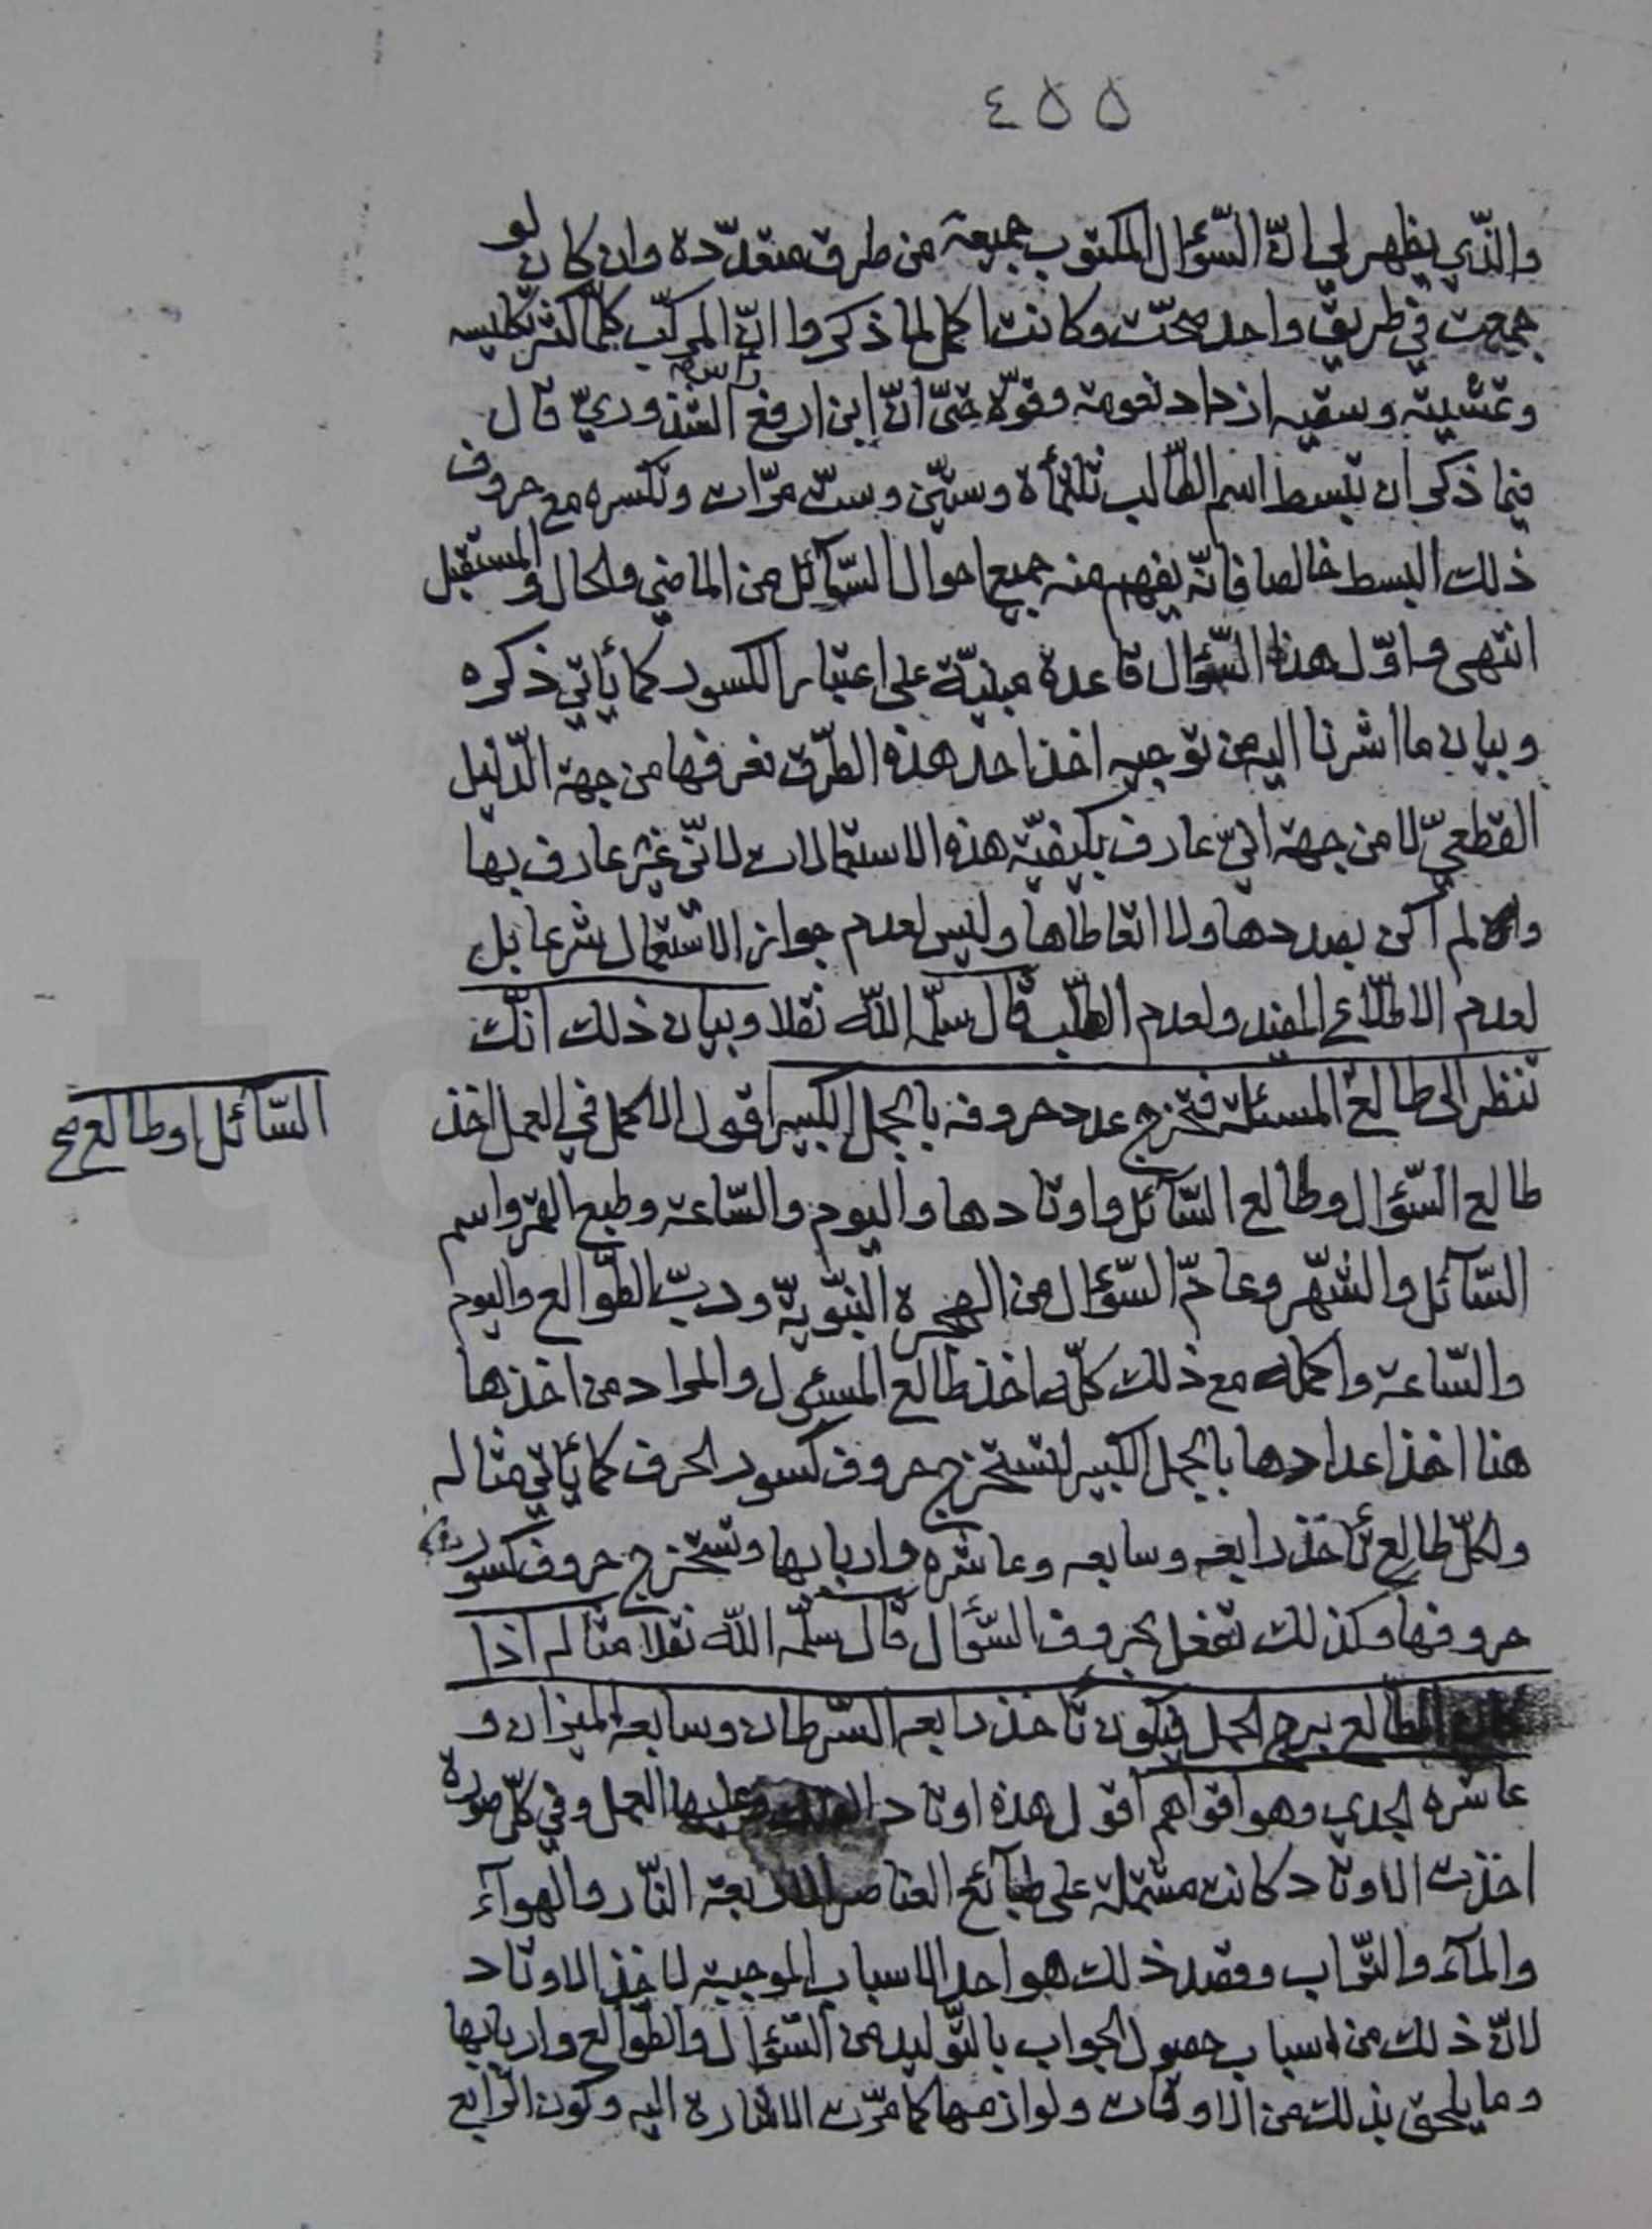 ٤٥٥
والّذي يظهر لي انّ السّؤال المكتوب جميعه من طرق متعدّدة وان كان لو
جمعت في طريق واحد صحّت وكانت اكمل لما ذكروا انّ المركّب كلّما كثر تكليسه
وتشبيته وسقيه ازداد نعومة وقوّة حتّى انّ ابن ارفع راسه الشّذوريّ قال
فيما ذكر ان تبسط اسم الطّالب ثلثمأة وستّين وستّ مرّات وتكسره مع حروف
ذلك البسط خالصا فانّه يفهم منه جميع احوال السّائل من الماضي والحال والمستقبل
انتهى واوّل هذا السّؤال قاعدة مبنيّة على اعتبار الكسور كما يأتي ذكره
وبيان ما اشرنا اليه من توجيه اخذ احد هذه الطّرق نعرفها من جهة الدّليل
القطعيّ لا من جهة انّي عارف بكيفيّة هذه الاستعمالات لانّي غير عارف بها
ولم أكن بصددها ولا اتعاطاها وليس لعدم جواز الاستعمال شرعا بل
لعدم الاطّلاع المفيد ولعدم الطّلب قال سلّمه اللّه نقلا وبيان ذلك انّك
تنظر الى طالع المسئلة فتخرج عدد حروفه بالجمل الكبير اقول الاكمل في العمل اخذ
السّائل او طالع صح
طالع السّؤال وطالع السّائل واوتادها واليوم والسّاعة وطبع القمر واسم
السّائل والشّهر وعامّ السّؤال من الهجرة النّبويّة وربّ الطّوالع واليوم
والسّاعة واكمله مع ذلك كلّه اخذ طالع المسئول والمراد من اخذها
هنا اخذ اعدادها بالجمل الكبير لتستخرج حروف كسور الحرف كما يأتي مثاله
ولكلّ طالع تأخذ رابعه وسابعه وعاشره واربابها وتستخرج حروف كسور
حروفها وكذلك تفعل بحروف السّؤال قال سلّمه اللّه نقلا مثاله اذا
كان الطالع برج الحمل فيكون تأخذ رابعه السّرطان وسابعه الميزان و
عاشره الجدي وهو اقواهم اقول هذه اوتاد وعليها العمل وفي كلّ صورة
اخذت الاوتاد كانت مشتملة على طبآئع العناصر الاربعة النّار والهوآء
والمآء والتّراب وقصد ذلك هو احد الاسباب الموجبة لاخذ الاوتاد
لانّ ذلك من اسباب حصول الجواب بالتّوليد من السّؤال والطّوالع واربابها
وما يلحق بذلك من الاوقات ولوازمها كما مرّت الاشارة اليه وكون الرّابع